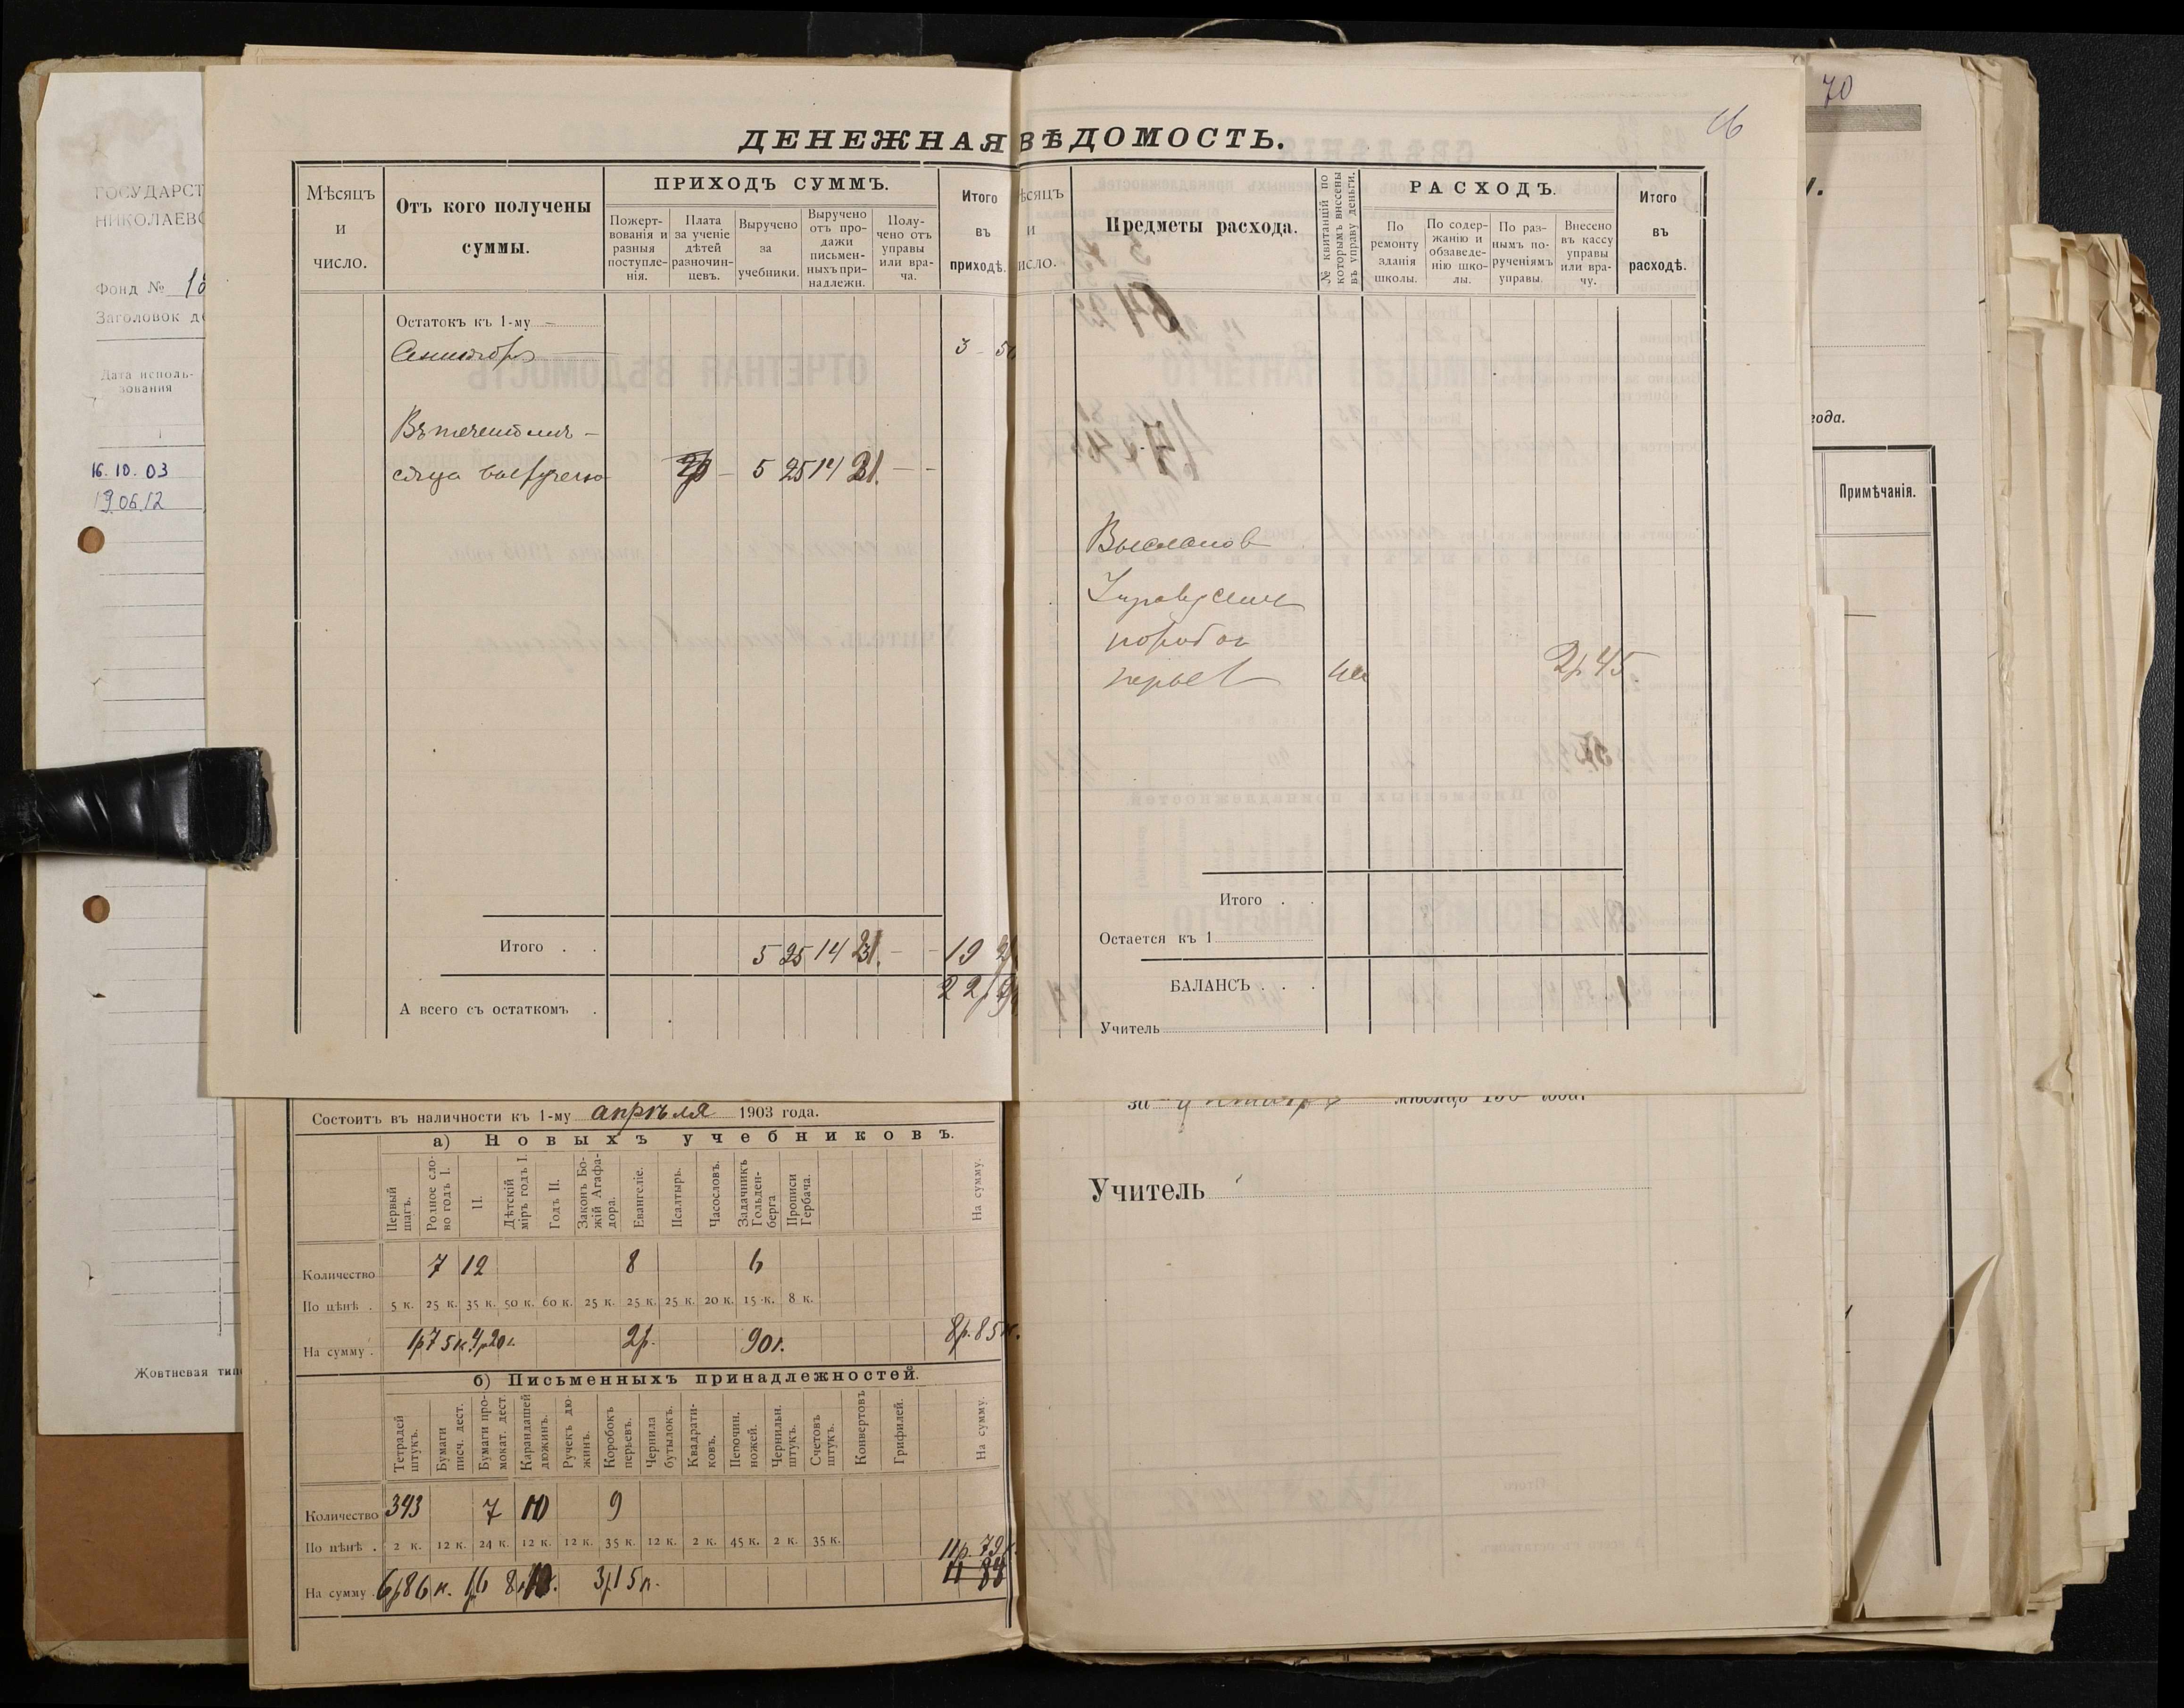 70
16
ГОСУДАРСТ
НИКОЛАЕВС
Фонд №
Заголовок д
Дата исполь-
зования
16.10.03
19.06.12
Жовтневая тип
ДЕНЕЖНАЯ ВѢДОМОСТЬ.
Мѣсяцъ
и
число.
Отъ кого получены
суммы.
ПРИХОДЪ СУММЪ.
Пожерт-
вованія и
разныя
поступле-
нія.
Плата
за ученіе
дѣтей
разночин-
цевъ.
Выручено
за
учебники.
Выручено
отъ про-
дажи
письмен-
ныхъ при-
надлежн.
Полу-
чено отъ
управы
или вра-
ча.
Итого
въ
приходѣ.
Остатокъ къ 1-му
3 - 50
сяца
5 25 14
Итого . .
5 25 14
19
А всего съ остаткомъ .
ѣсяцъ
и
исло.
Предметы расхода.
№ квитанцій по
которымъ внесены
въ управу деньги.
РАСХОДЪ.
По
ремонту
зданія
школы.
По содер-
жанію и
обзаведе-
нію шко-
лы.
По раз-
нымъ по-
рученіямъ
управы.
Внесено
въ кассу
управы
или вра-
чу.
Итого
въ
расходѣ.
2р 45
Итого . .
Остается къ 1
БАЛАНСЪ . . .
Учитель
года.
Примѣчанія.
Состоитъ въ наличности къ 1-му апрѣля 1903 года.
а) Новыхъ учебниковъ.
Первый
шагъ.
Родное сло-
во годъ I.
II.
Дѣтскій
міръ годъ I.
Годъ II.
Законъ Бо-
жій Агафа-
дора.
Евангеліе.
Псалтырь.
Часословъ.
Задачникъ
Гольден-
берга
Прописи
Гербача.
На сумму.
Количество 7 12 8 6
По цѣнѣ . 5 к. 25 к. 35 к. 50 к. 60 к. 25 к. 25 к. 25 к. 20 к. 15 к. 8 к.
На сумму . 1р75к 4р20к. 2р. 90к. 8р.85к.
б) Письменныхъ принадлежностей.
Тетрадей
штукъ.
Бумаги
писч. дест.
Бумаги про-
мокат. дест.
Карандашей
дюжинъ.
Ручекъ дю-
жинъ.
Коробокъ
перьевъ.
Чернила
бутылокъ.
Квадрати-
ковъ.
Перочин.
ножей.
Чернильн.
штукъ.
Счетовъ
штукъ.
Конвертовъ
Грифилей.
На сумму.
Количество 343 7 10 9
По цѣнѣ . 2 к. 12 к. 24 к. 12 к. 12 к. 35 к. 12 к. 2 к. 45 к. 2 к. 35 к.
11р. 79
На сумму . 6р86к. 3р15к.
за мѣсяцъ 190 года.
Учитель